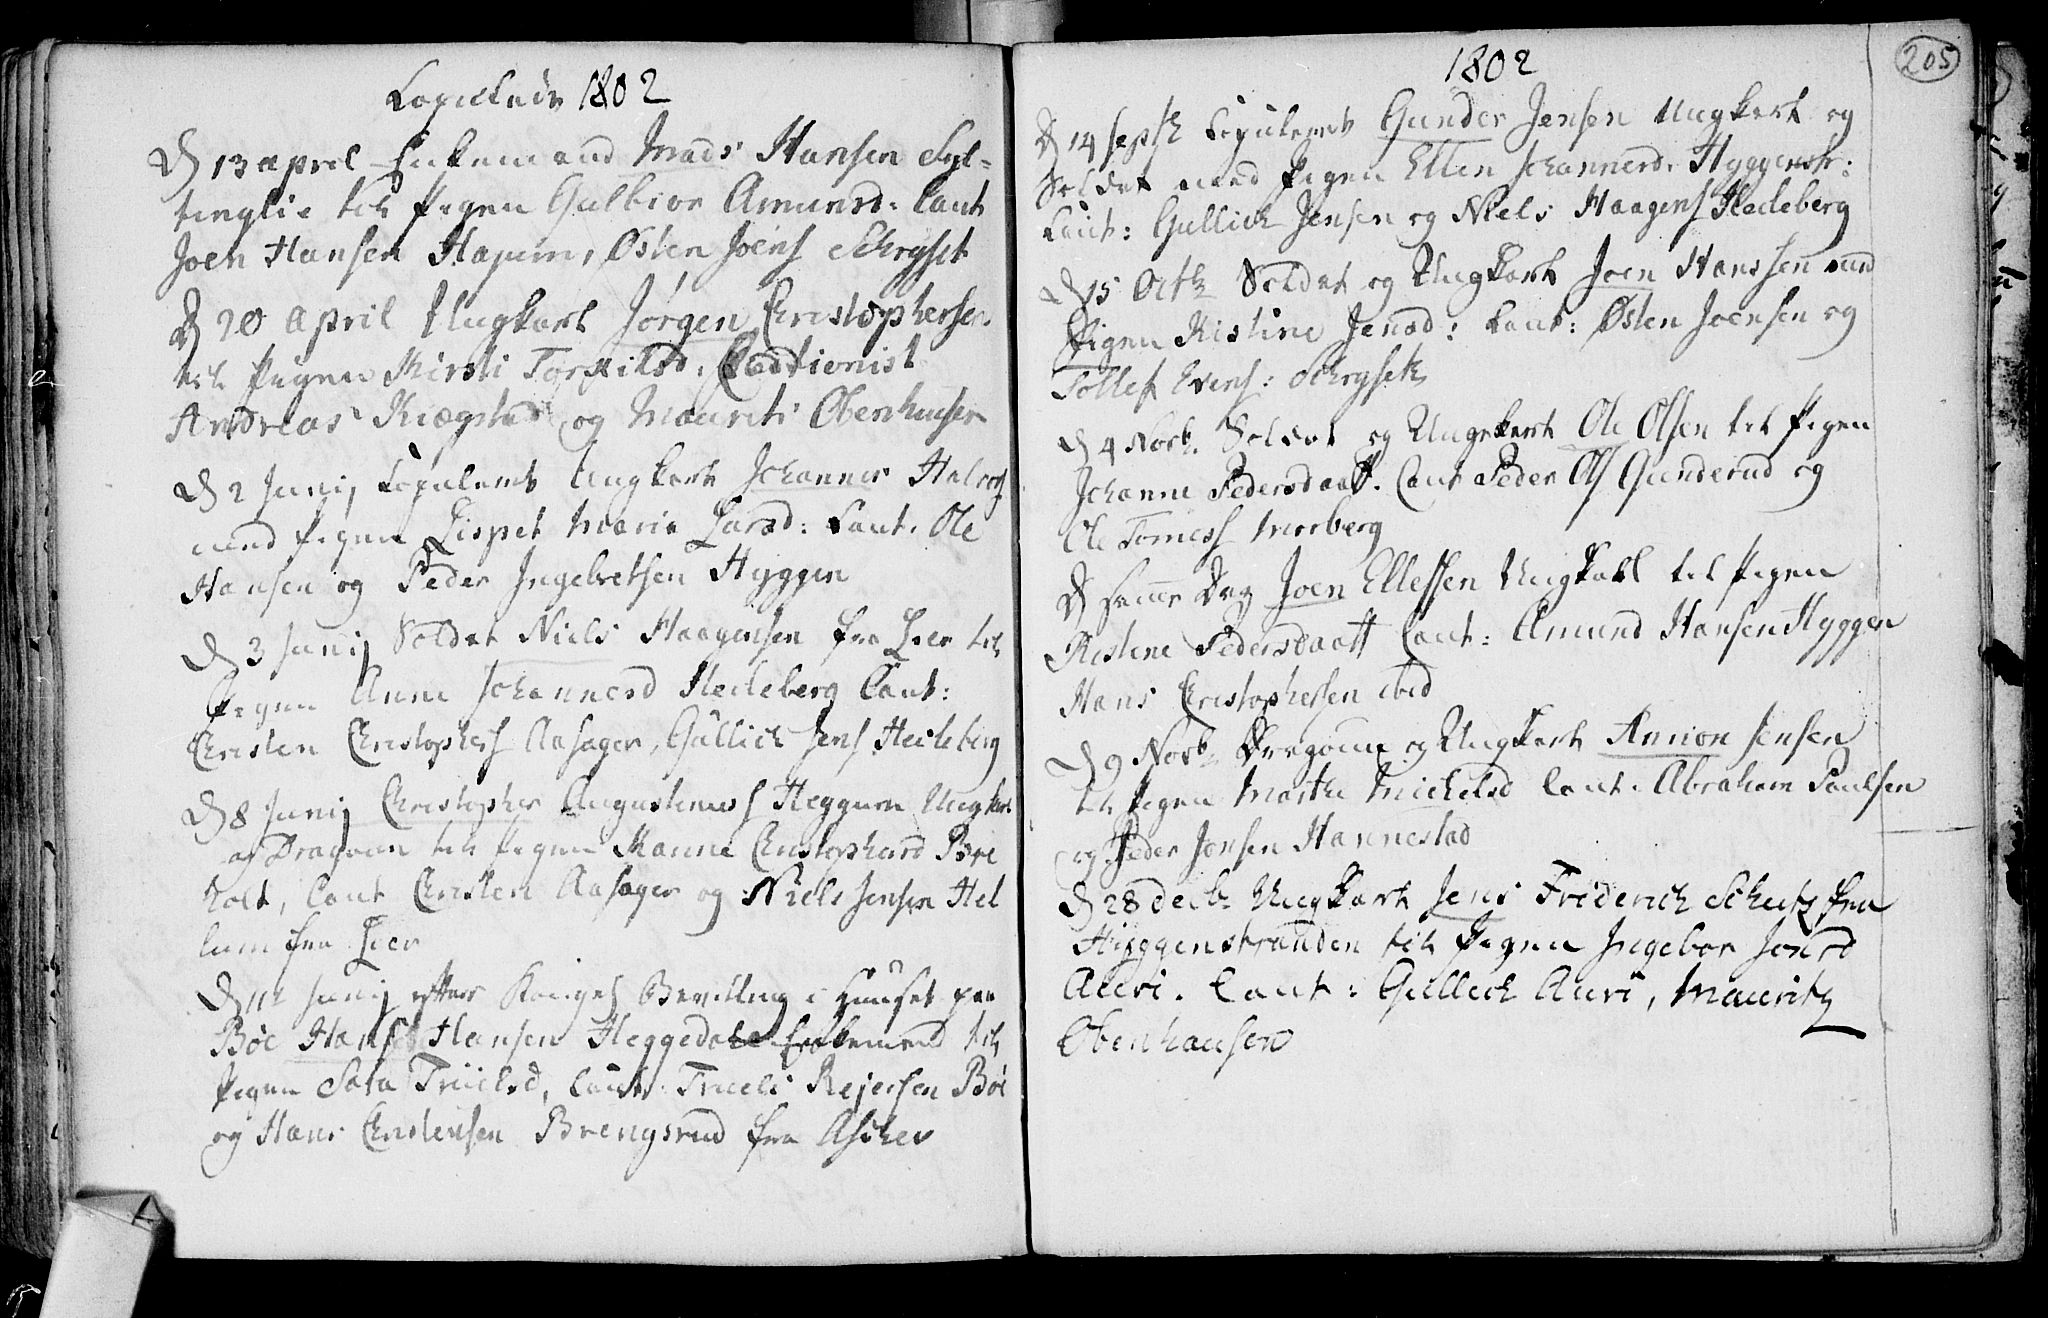 Copulerede 1802
D 13 april Enkemand Mads Hansen Syl-
tinglie til Pigen Gulbior Amunsd: Caut
Joen Hansen Hajum, Østen Joens Schryset
D 20 April Ungkarl Jørgen Christophersen
til Pigen Kirsti Torkilsd. Cautionist
Andreas Kiægstad og Mauritz Obenhausen
D 2 Junij Copuleret Ungkarl Johannes Halvors
med Pigen Lispet Maria Larsd: Caut. Ole
Hansen og Peder Ingebretsen Hyggen
D 3 Junij Soldat Niels Haagensen fra Lier til
Pigen Anne Johannesd Hedeberg Caut:
Christen Christophers Aasager, Gullich Jens Hedeberg
D 8 Junij Christopher Augustinuss Heggum Ungkarl
og Dragoun til Pigen Hanne Christophersd
holt, Caut Christen Aasager og Niels Jensen Hel
lum fra Lier
D 11 Junij efter Konges Bevilling i Huuset paa
Böe Hans Hansen Heggedale Enkemand til
Pigen Sara Truelsd, Caut. Truels Rejersen Böe
og Hans Christensen Brengsrud fra Ascher
1802
205
D 14 Septb Copuleret Gunder Jensen Ungkarl og
Soldat med Pigen Ellen Johannesd. Hyggenstr:
Caut: Gullich Jensen og Niels Haagens Hedeberg
D 15 Octb Soldat og Ungkarl Joen Hanssen med
Pigen Kistine Jensd: Caut: Østen Joensen og
Tollef Evens: Schryset
D 4 Novb. Soldat og Ungekarl Ole Olsen til Pigen
Johanne Pedersdaatt. Caut Peder Ols Gunderud og
Ole Tomess Morberg
D samme Dag Joen Ellefsen Ungkarl til Pigen
Kistine Pedersdaatt Caut: Amund Hansen Hyggen
Hans Christophersen ibid
D 9 Novb. Dragoun og Ungkarl Anrion Jensen
til Pigen Marthe Michelsd Caut. Abraham Paulsen
og Peder Jensen Hannestad
D 28 Decb. Ungkarl Jens Friderich Schutz fra
Hyggenstranden til Pigen Ingebor Jonsd
Auvi. Caut: Gullich Auvi, Mauritz
Obenhausen